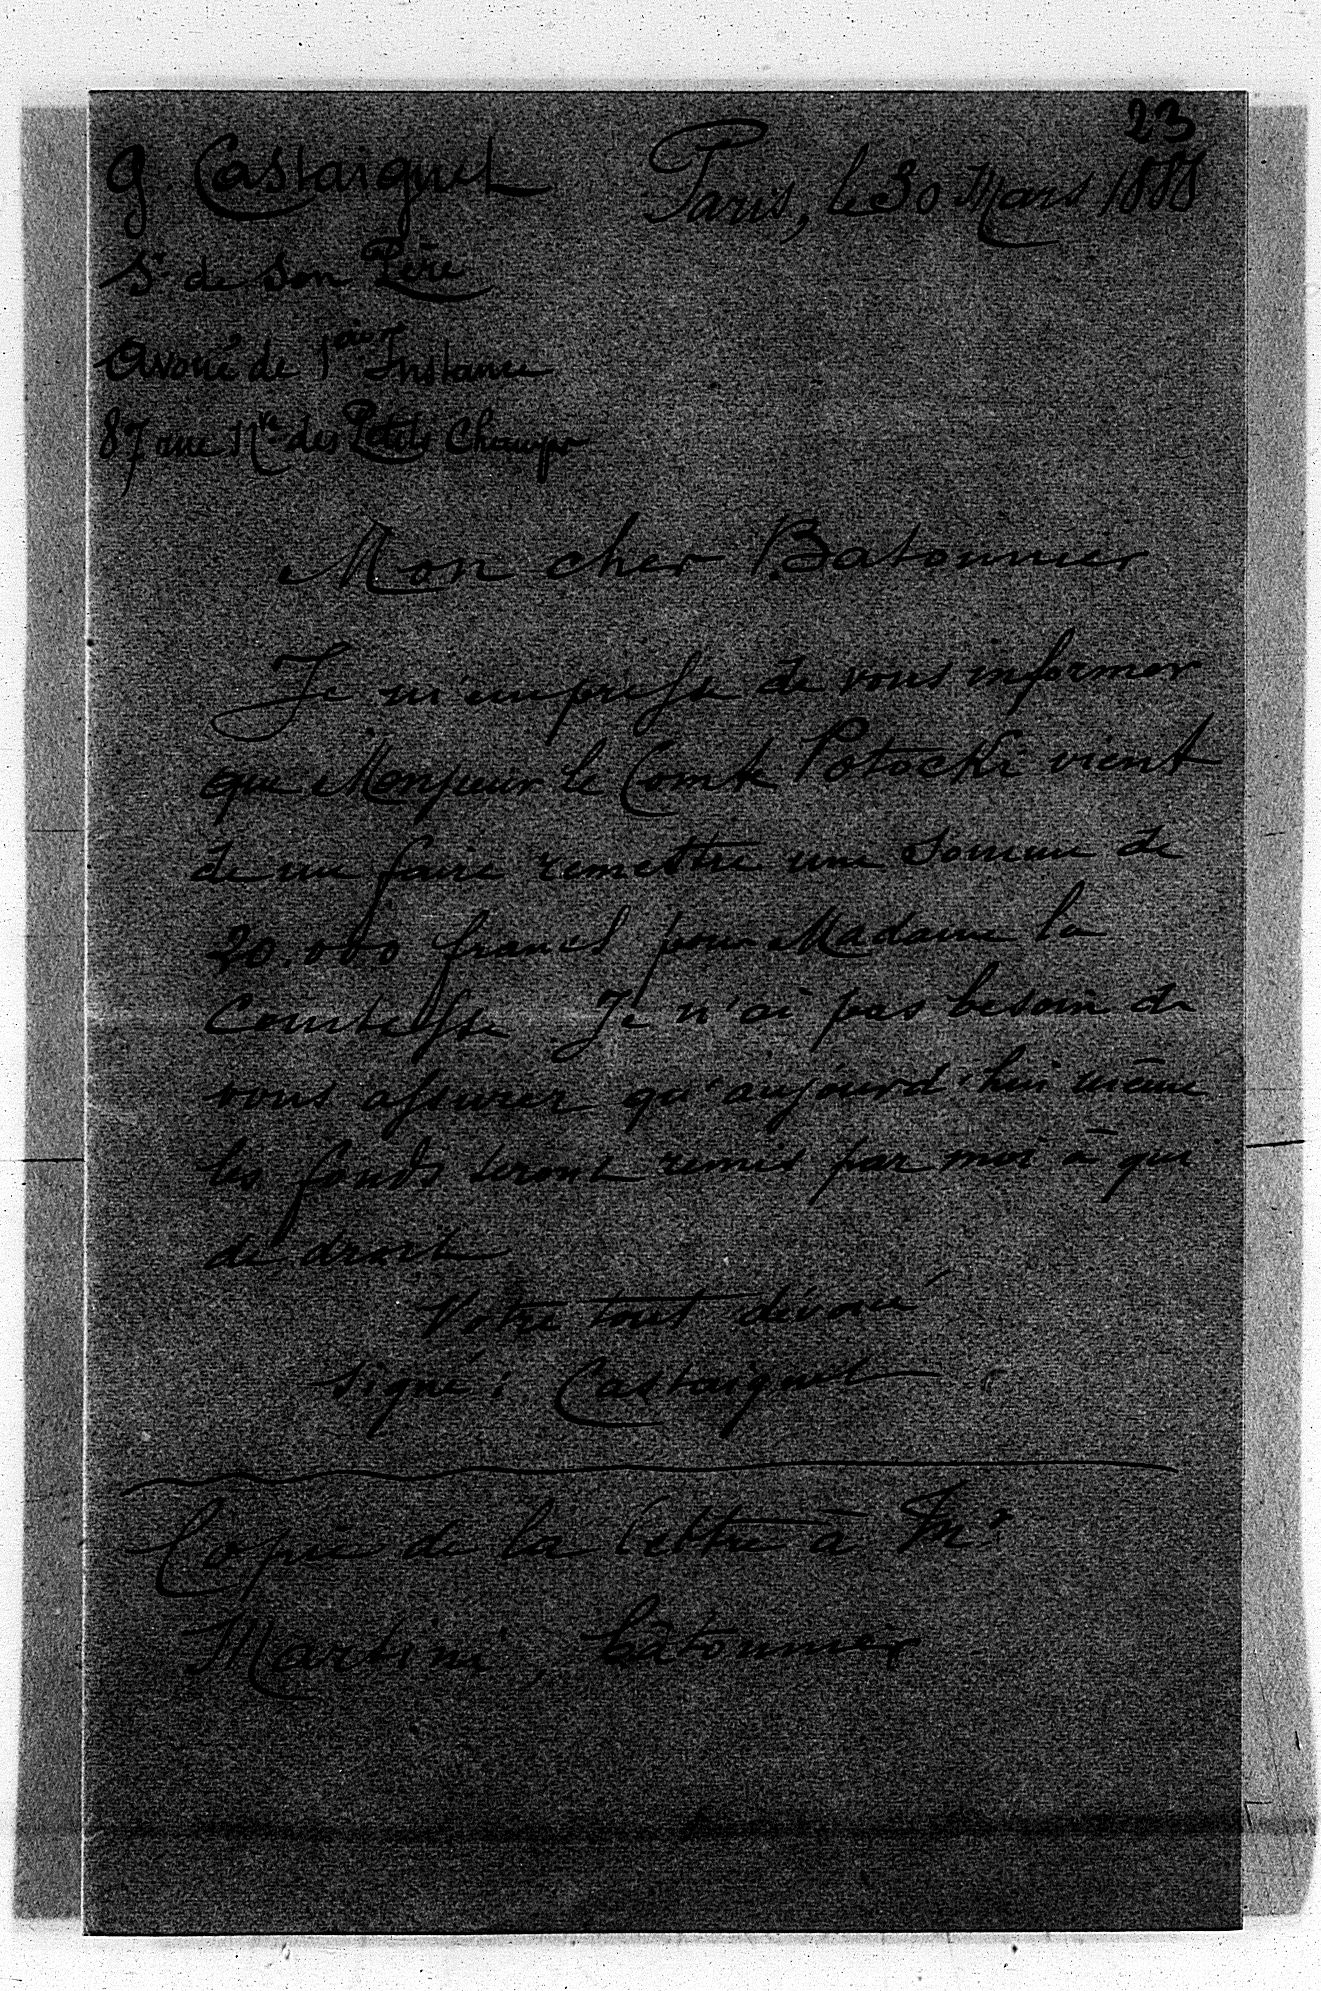 23
G. Castaignet
Paris, le 30 Mars 1888
Sr. de son Père
Avoué de 1ère Instance
87 rue Nve des Petits Champs
Mon cher Batonnier
Je m'empresse de vous informer
que Monsieur le Comte Potocki vient
de me faire remettre une somme de
20.000 francs pour Madame la
Comtesse. Je n'ai pas besoin de
vous assurer qu'aujourd'hui même
les fonds seront remis par moi à qui
de droit
Votre tout dévoué
signé : Castaignet
Copie de la lettre à Me
Martini, bâtonnier